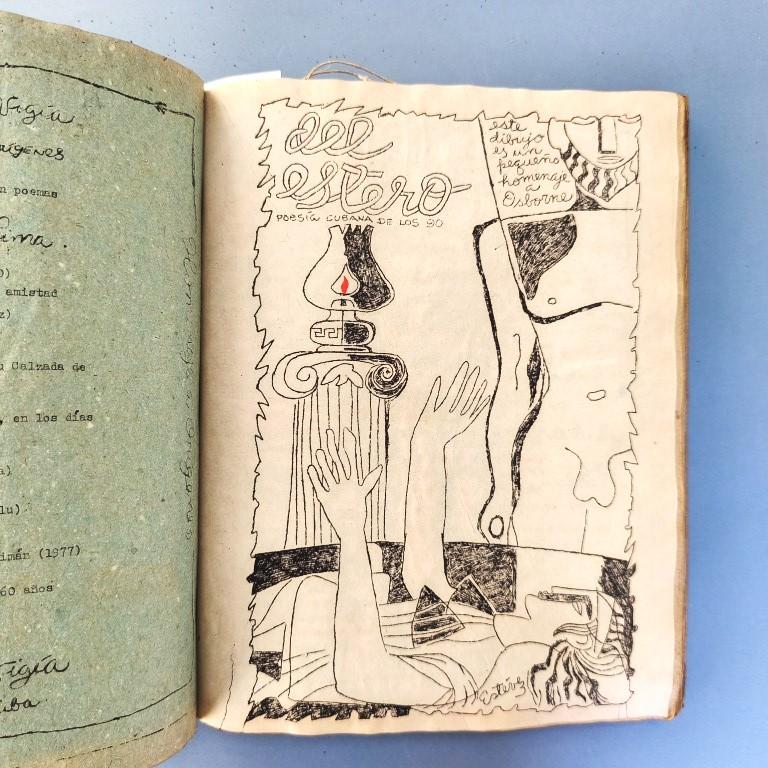 Vigía
ORÍGENES
n poemas
ima.
0)
amistad
z)
u Calzada de
, en los días
a)
lu)
imán (1977)
60 años
Vigía
uba
del
estero
POESÍA CUBANA DE LOS 90
este
dibujo
es un
pequeño
homenaje
a
Osborne
Estévez